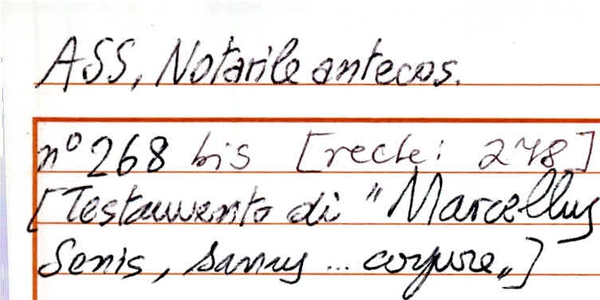 ASS, Notarile antecos.
n° 268 bis [recte: 278]
[Testamento di "Marcellus
Senis, sanus ... corpore„]